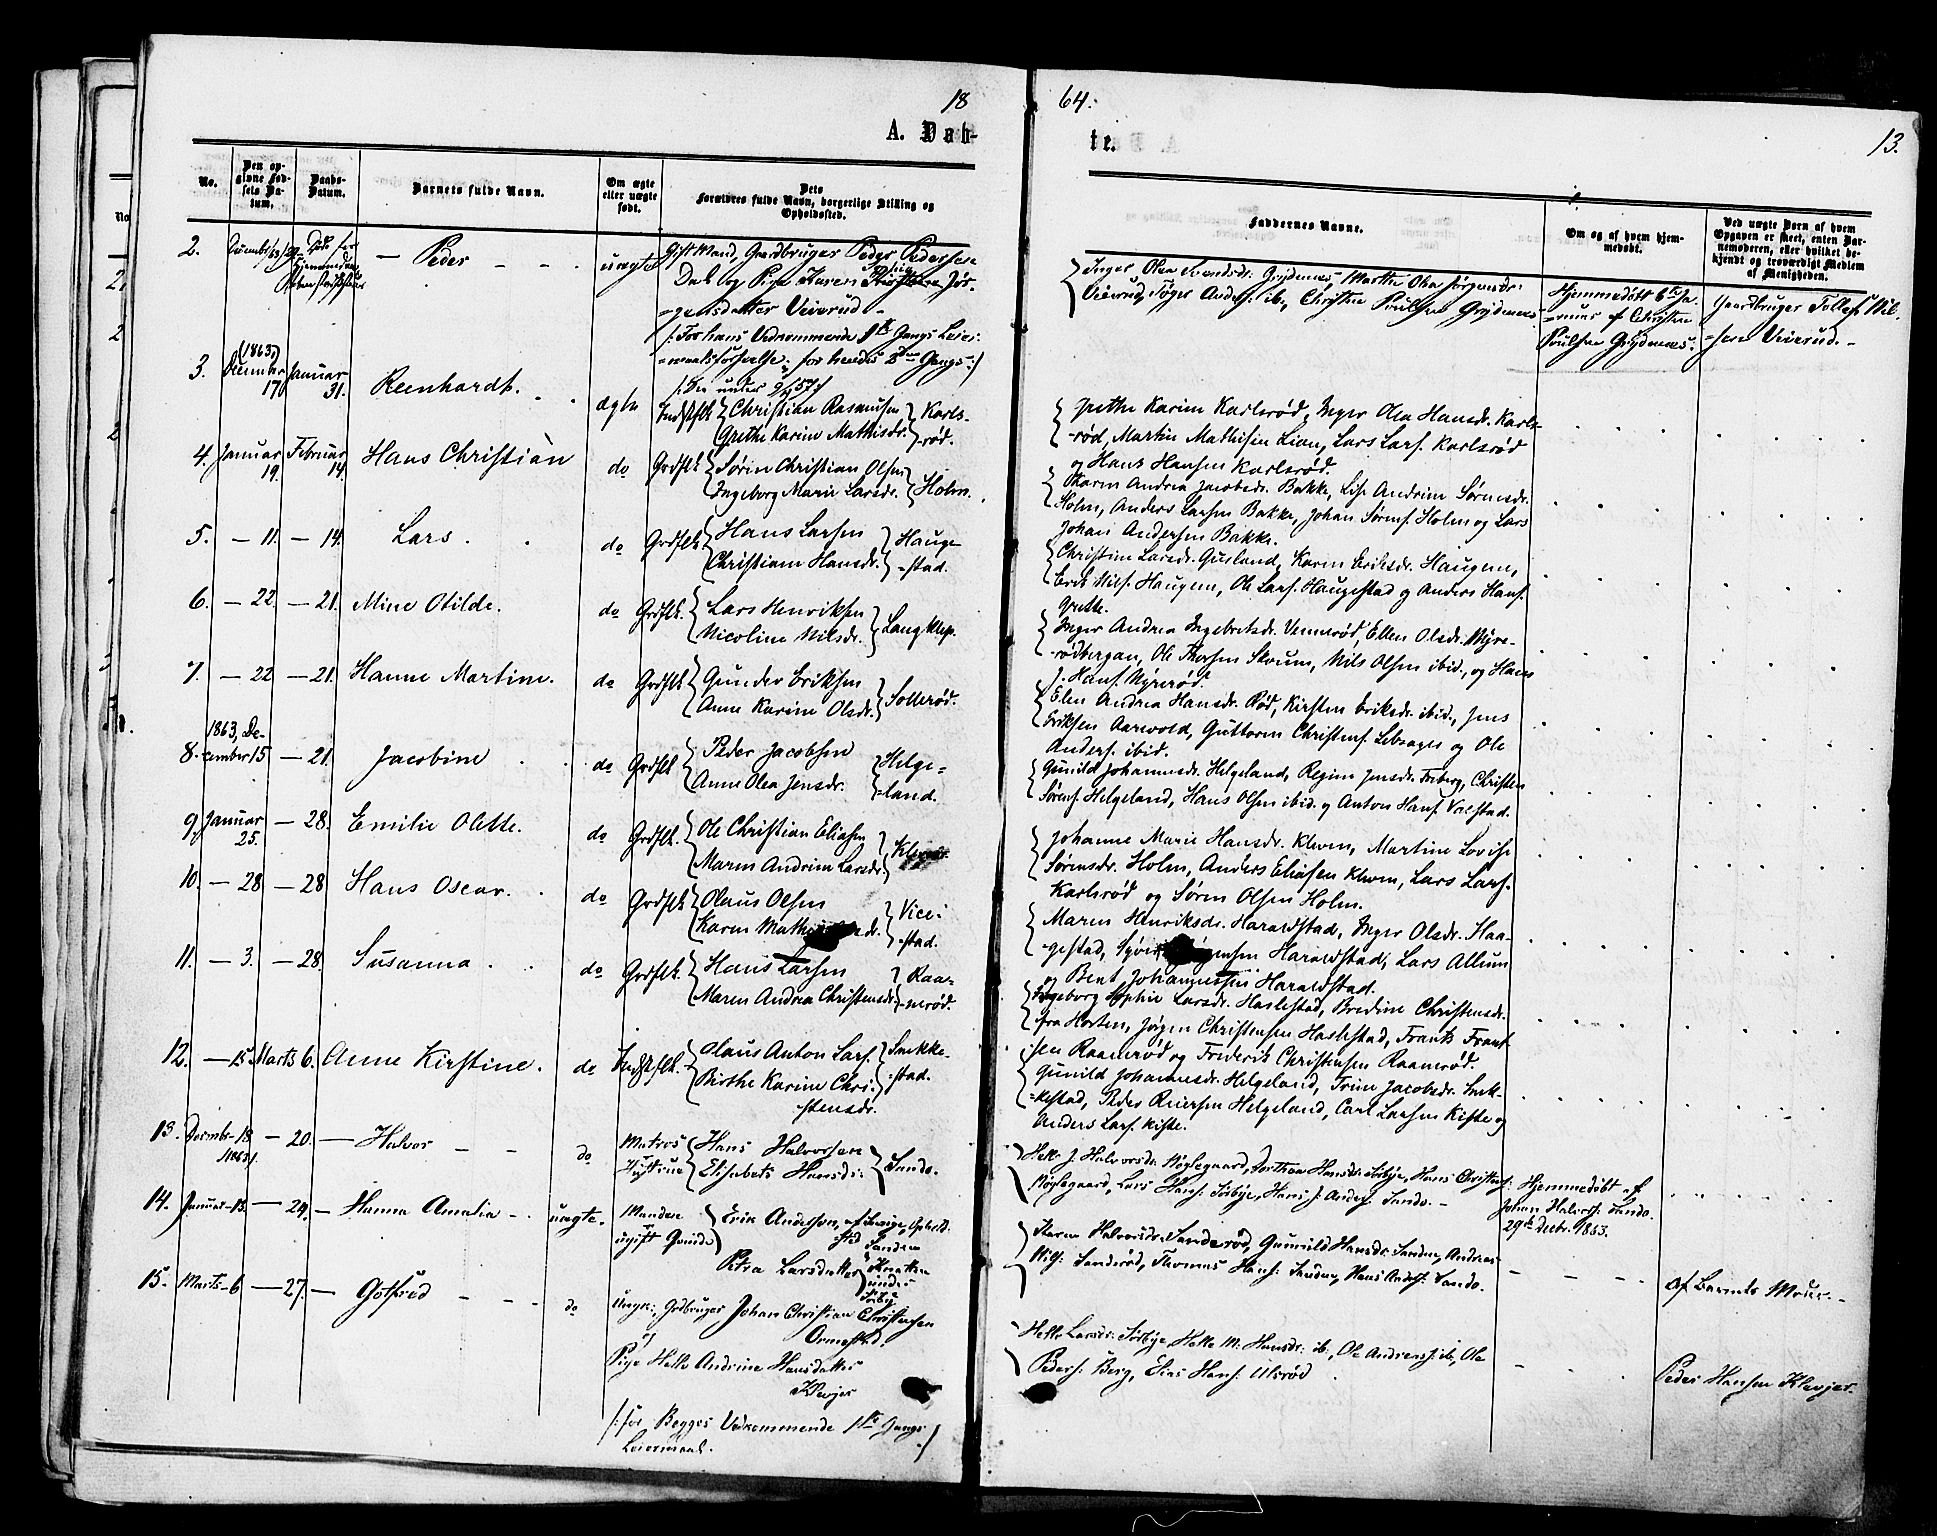 18
64.
A. Døb-
te.
13.
No.
Den op-
givne Fød-
sels Da-
tum.
Daabs-
Datum.
Barnets fulde Navn.
Om ægte
eller uægte
født.
Dets
Forældres fulde Navn, borgerlige Stilling og
Opholdssted.
Faddernes Navne.
Om og af hvem hjem-
medøbt.
Ved uægte Børn af hvem
Opgaven er skeet, enten Bar-
nemoderen, eller hvilket be-
kjendt og troværdigt Medlem
af Menigheden.
2.
Peder
uægte
Gift Mand, Gaardbruger Peder Pedersen
Dal og Pige Karen Jør-
gensdatter Veierud
/: For hans Vedkommende Gangs Leier-
maalsforseelse, for hendes Gangs :/
Inger Olea Svendsdr. Grydenes, Marthe Olea Jørgensdr.
Veierud, Anders. ib., Christen Poulsen Grydenes
Hjemmedøbt 6te Ja-
nuar af Christen
Poulsen Grydenes.
Gaardbruger Tollef Nil-
sen Veierud.
3.
(1863)
December
17
Januar
31.
Reenhardt.
ægte
Indstflk
Christian Rasmussen
Grethe Karine Mathisdr.
Karls-
rød.
Grethe Karine Karlsrød, Inger Olea Hansdr. Karls-
rød, Martin Mathisen Lian, Lars Lars. Karlsrød
og Hans Hansen Karlsrød.
4.
Januar
19.
Februar
14.
Hans Christian
do
Grdflk
Søren Christian Olsen
Ingeborg Marie Larsdr.
Holm.
Karen Andrea Jacobsdr. Bakke, Lise Andrine Sørensdr.
Holm, Anders Larsen Bakke, Johan Sørens. Holm og Lars
Johan Andersen Bakke.
5.
— 11.
— 14.
Lars.
do
Grdflk
Hans Larsen
Christiane Hansdr.
Hauge-
stad.
Christine Larsdr. Gusland, Karen Eriksdr. Haugene,
Erik Nils. Haugene, Ole Lars. Haugestad og Anders Hans.
Grette.
6.
— 22.
— 21.
Mine Otilde.
do
Grdflk.
Lars Henriksen
Nicoline Nilsdr.
Langklep.
Inger Andrea Ingebretsdr. Vennerød, Ellen Olsdr. Myre-
rødbergan, Ole Thorsen Skoum, Nils Olsen ibid., og Hans
J. Hans. Myrerød.
7.
— 22
— 21.
Hanne Martine.
do
Grdflk
Gunder Eriksen
Anne Karine Olsdr.
Sollerød.
Elen Andrea Hansdr. Rød, Kirsten Eriksdr. ibid., Jens
Eriksen Aarvold, Guttorm Christens. Lebsager og Ole
Anders. ibid.
8.
1863, De-
cember 15
— 21.
Jacobine
do
Grdflk
Peder Jacobsen
Anne Olea Jensdr.
Helge-
land.
Gunild Johannesdr. Helgeland, Regine Jensdr. Freberg, Christen
Sørens. Helgeland, Hans Olsen ibid. og Anton Hans. Valstad.
9.
Januar
25.
— 28.
Emilie Olette.
do
Grdflk.
Ole Christian Eliasen
Maren Andrine Larsdr.
Johanne Marie Hansdr. Kleven, Martine Lovise
Sørensdr. Holm, Anders Eliasen Kleven, Lars Lars.
Karlsrød og Søren Olsen Holm.
10.
— 28
— 28
Hans Oscar.
do
Grdflk
Olaus Olsen
Karen
Vive-
stad.
Maren Henriksdr. Haraldstad, Inger Olsdr. Haa-
gestad, Haraldstad, Lars Allum
og Bent Johannessen Haraldstad.
11.
— 3.
— 28.
Susanna.
do
Grdflk.
Hans Larsen
Maren Andrea Christensdr.
Raa-
nerød.
Ingeborg Sophie Larsdr. Haslestad, Bredine Christensdr.
fra Horten, Jørgen Christensen Haslestad, Frants Frant-
sen Raanerød og Frederik Christensen Raanerød.
12.
— 15.
Marts 6.
Anne Kirstine.
do
Indstflk.
Olaus Anton Lars.
Birthe Karine Chri-
stensdr.
Snekke-
stad.
Gunild Johannesdr. Helgeland, Trine Jacobsdr. Snek-
kestad, Peder Reiersen Helgeland, Carl Larsen Kiste og
Anders Lars. Kiste.
13.
Decembr. 18
1863.
— 20.
Halvor
do
Matros
Hans Halvorsen
Elisabeth Hansdr.
Sando.
Helle J. Halvorsdr. Nøglegaard, Dorthea Hansdr. Sørbye, Hans Christens.
Nøglegaard, Lars Hans. Sørbye, Hans J. Anders. Sando. —
Hjemmedøbt af
Johan Halvors. Sando.
29de Decbr. 1863.
14.
Januar 13.
— 29.
Hanna Amalia
uægte.
ugift Qvinde
Erik Andersson, af Sverige, Opholds-
sted Sanden
Petra Larsdatter
under
Sørby
Karen Halvorsdr. Sanderød, Gunnild Hansdr. Sanden, Andreas
Nils. Sanderød, Thomas Hans. Sanden, Hans Anders. Sando.
Af Barnets Moder.
15.
Marts 6
— 27.
Gotfred
do
Ungk., Grdbruger Johan Christian Christensen
Ormestad,
Pige Helle Andrine Hansdatter
Klevjer
/: for Begges Vedkommende 1ste Gangs
Leiermaal. :/
Helle Larsdr. Sørbye, Helle M. Hansdr. ib., Ole Andreas. ib., Ole
Peders. Berg, Elias Hans. Ulsrød
Peder Hansen Klevjer.